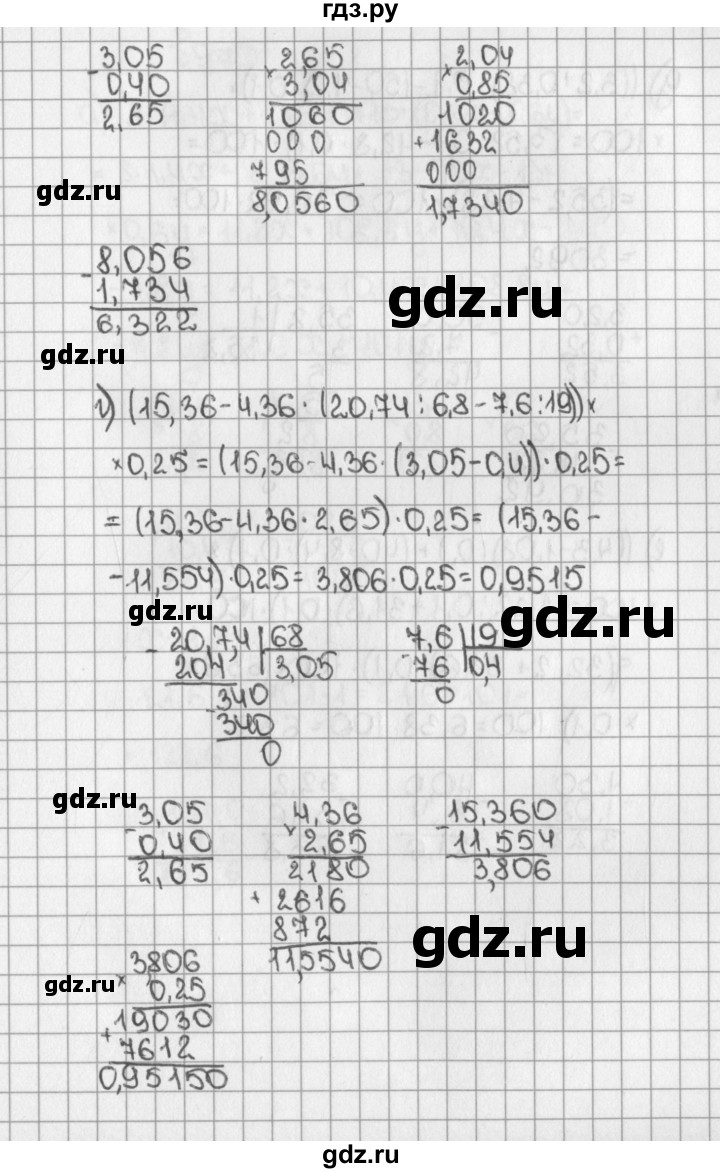 гдз.ру
3,05 2,65 2,04
- 0,40 × 3,04 × 0,85
2,65 1060 1020
000 + 1632
gdz.ru 795 000
8,0560 1,7340
8,056
- 1,734
6,322
gdz.ru
gdz.ru
г) (15,36-4,36·(20,74:6,8-7,6:19))×
×0,25=(15,36-4,36·(3,05-0,4))·0,25=
=(15,36-4,36·2,65)·0,25=(15,36-
-11,554)·0,25=3,806·0,25=0,9515
gdz.ru
gdz.ru
- 20,7,4 68 - 7,6 19
204 3,05 76 0,4
- 340 0
340
0
gdz.ru
3,05 4,36 15,360
- 0,40 × 2,65 - 11,554
2,65 2180 3,806
+ 2616
872
11,5540
gdz.ru
3,806
gdz.ru × 0,25
19030
+ 7612
0,95150
gdz.ru